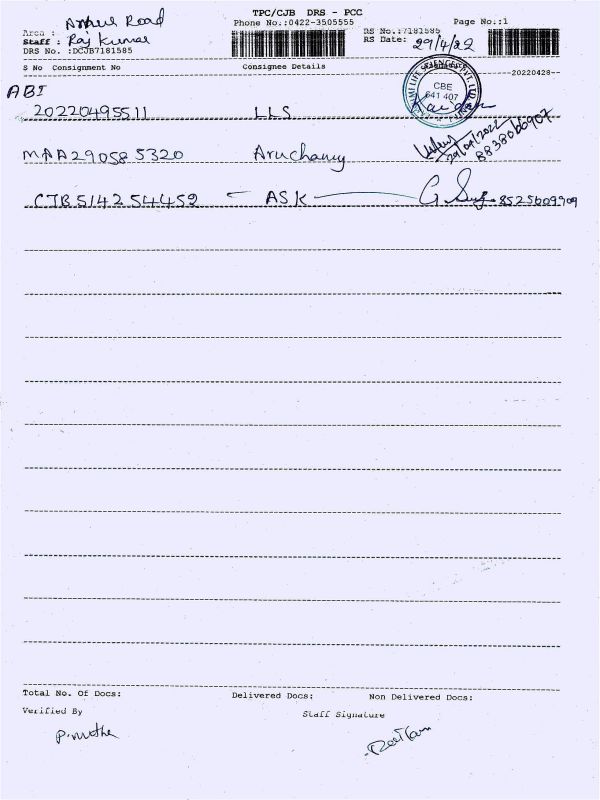 TPC/CJB DRS - PCC
Phone No.:0422-3505555
Page No.:1
Area : Road
Staff : Raj Kumar
DRS No. :DCJB7181585
RS No.:7181585
RS Date: 29/4/22
S No Consignment No Consignee Details 20220428--
ABI
20220495511 LLS
CBE
641 407
MAA290585320 Aruchamy 29/04/2022
8838066907
CJB514254459 ASK G. 8525609909
Total No. Of Docs: Delivered Docs: Non Delivered Docs:
Verified By Staff Signature
P. muthu